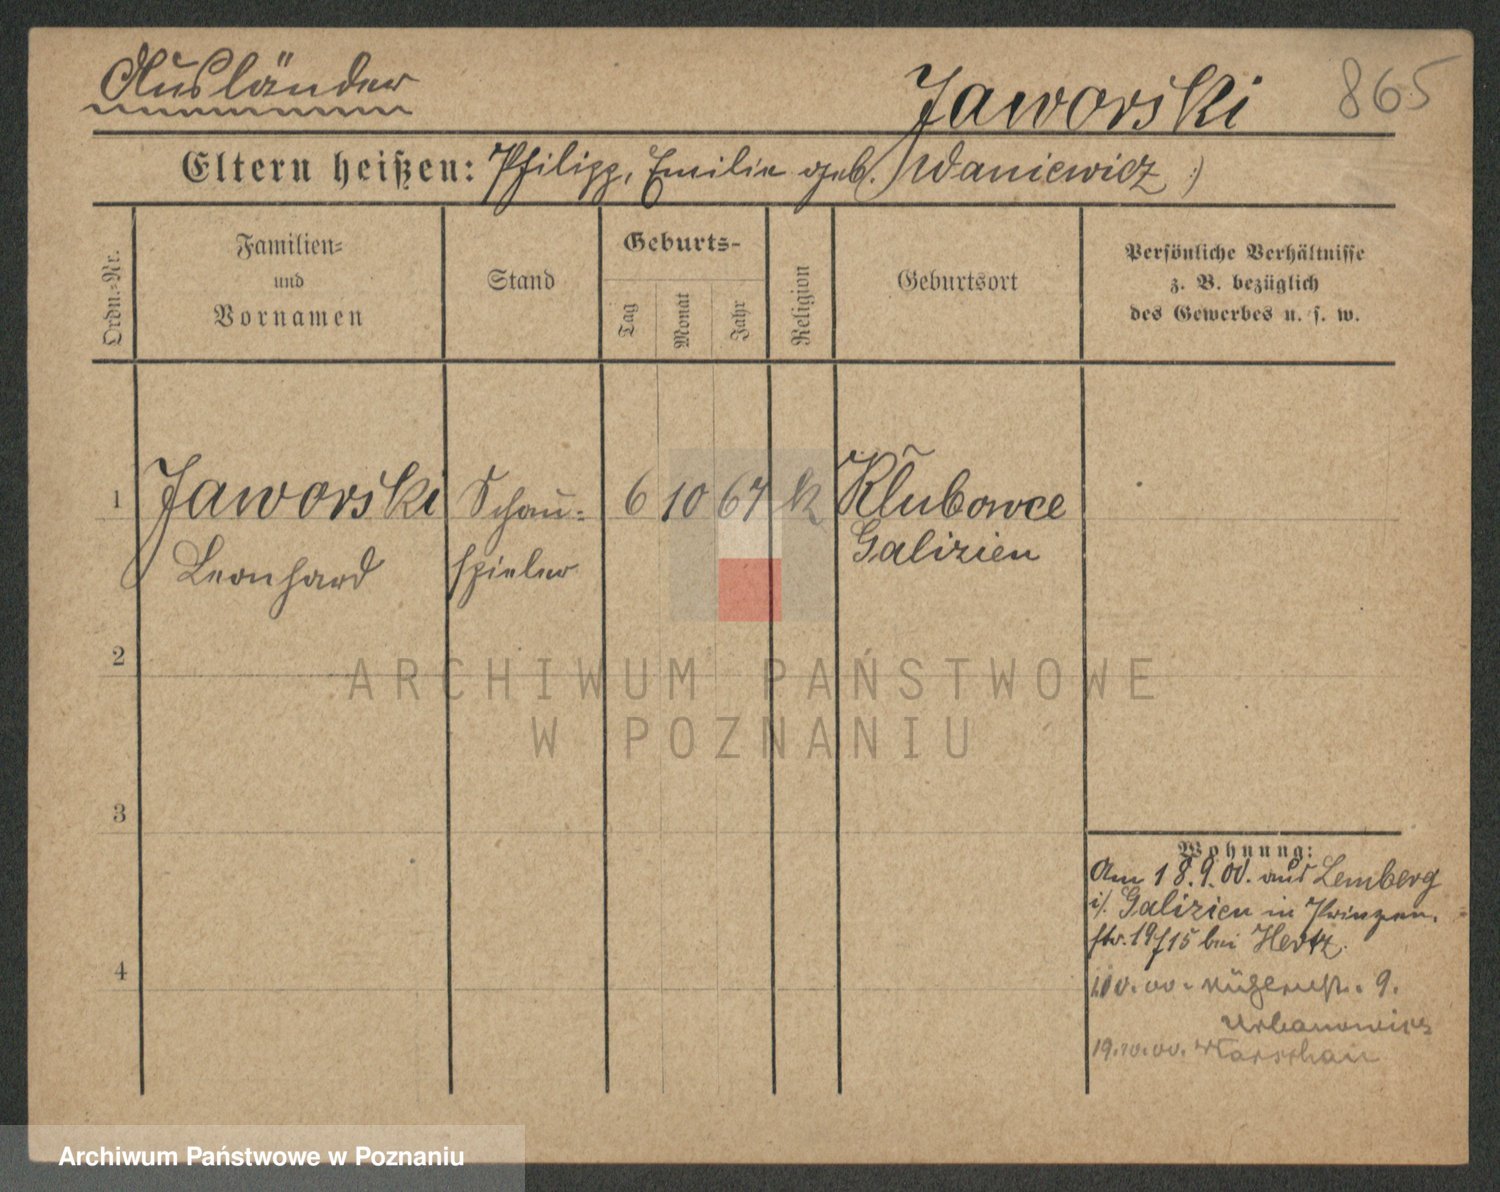 Ausländer
Jaworski
865
Eltern heißen: Philipp, Emilie geb. Waniewicz
Ordn.-Nr.
Familien-
und
Vornamen
Stand
Geburts-
Tag
Monat
Jahr
Religion
Geburtsort
Persönliche Verhältnisse
z. B. bezüglich
des Gewerbes u. s. w.
1 Jaworski Schau- 6 10 67 k Klubowce
Leonhard spieler Galizien
2
3
4
Wohnung:
Am 18.9.00. aus Lemberg
i/. Galizien in Prinzen-
str. 19/15 bei Hertz.
9.
Urbanowicz
19.10.00. Warschau
ARCHIWUM PAŃSTWOWE
W POZNANIU
Archiwum Państwowe w Poznaniu